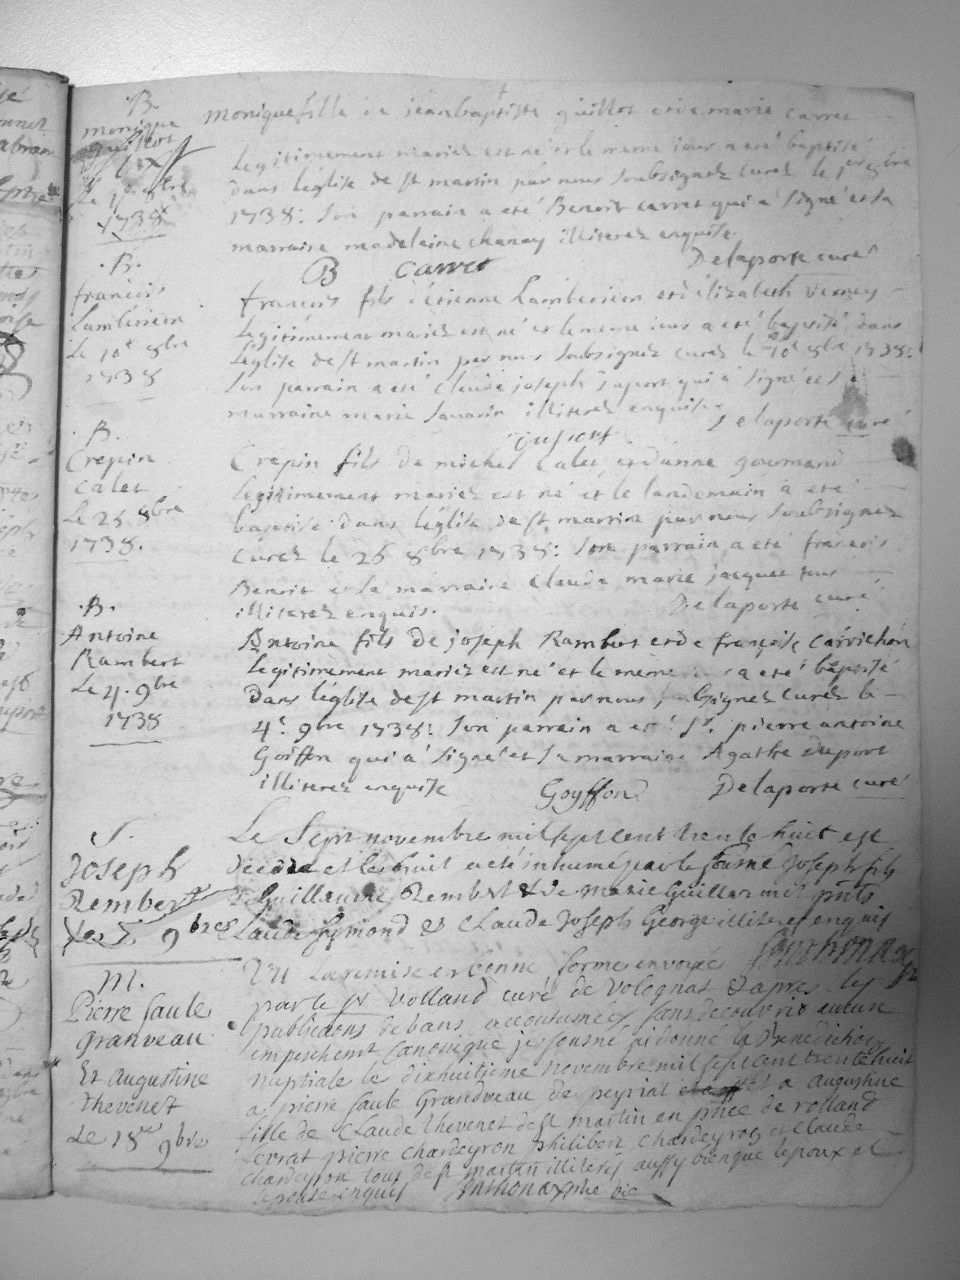 .B.
monique
guillot
Le 1er 8bre
1738
monique fille de jean baptiste guillot et de marie carret
legitimement mariez est né et le meme jour a eté baptisé
dans l'église de st martin par nous soubsignez curez le 1er 8bre
1738: son parrain a eté Benoit carret qui a signé et sa
marraine madelaine chanay illiterez enquise.
B carret
Delaporte curé
.B.
françois
Lambersien
Le 10e 8bre
1738
françois fils d'etienne Lambersien et d'elizabeth verney
legitimement mariez est né et le meme jour a eté baptisé dans
l'église de st martin par nous soubsignez curez le 10e 8bre 1738:
son parrain a eté claude joseph duport qui a signé et sa
marraine marie savarin illiterez enquise.
duport
Delaporte curé
.B.
Crepin
calet
Le 25 8bre
1738.
Crepin fils de michel calet et d'anne gourmand
legitimement mariez est né et le landemain a eté
baptisé dans l'église de st martin par nous soubsignez
curez le 26 8bre 1738: son parrain a eté francois
Benoit et la marraine claude marie jacquet tous
illiterez enquis.
Delaporte curé
.B.
Antoine
Rambert
Le 4. 9bre
1738
Antoine fils de joseph Rambert et de françoise carrichon
legitimement mariez est né et le meme a eté baptisé
Dans l'église de st martin par nous soubsignez curez le
4e 9bre 1738: son parrain a eté Sr. pierre antoine
Goiffon qui a signé et sa marraine Agathe duport
illiterez enquise
Goyffon
Delaporte curé
S.
Joseph
Rembert
9bres
Le Sept novembre mil sept cent trente huit est
decede et le huit a eté inhumé par le sousné Joseph fils
de Guillaume Rembert & de marie Guillermin pnts
claude Gymond et claude Joseph George illiteres enquis
Anthonax
M.
Pierre faule
Granveau
Et augustine
thevenet
Le 18me 9bre
Vu la remise en bonne forme envoyée
par le sr Volland curé de Volognat & apres les
publicaons de bans accoutumées sans decouvrir aucun
empechemt canonique je sousné ai donné la benediction
nuptiale le dixhuitieme novembre mil sept cent trente huit
a pierre faule Grandveau de peyriat a augustine
fille de claude thevenet de st martin en pnce de rolland
Levrat pierre chardeyron philibert chardeyron et claude
chardeyron tous de st martin illiteres aussy bien que lepoux et
lepouse enquis
Anthonax ptre vic